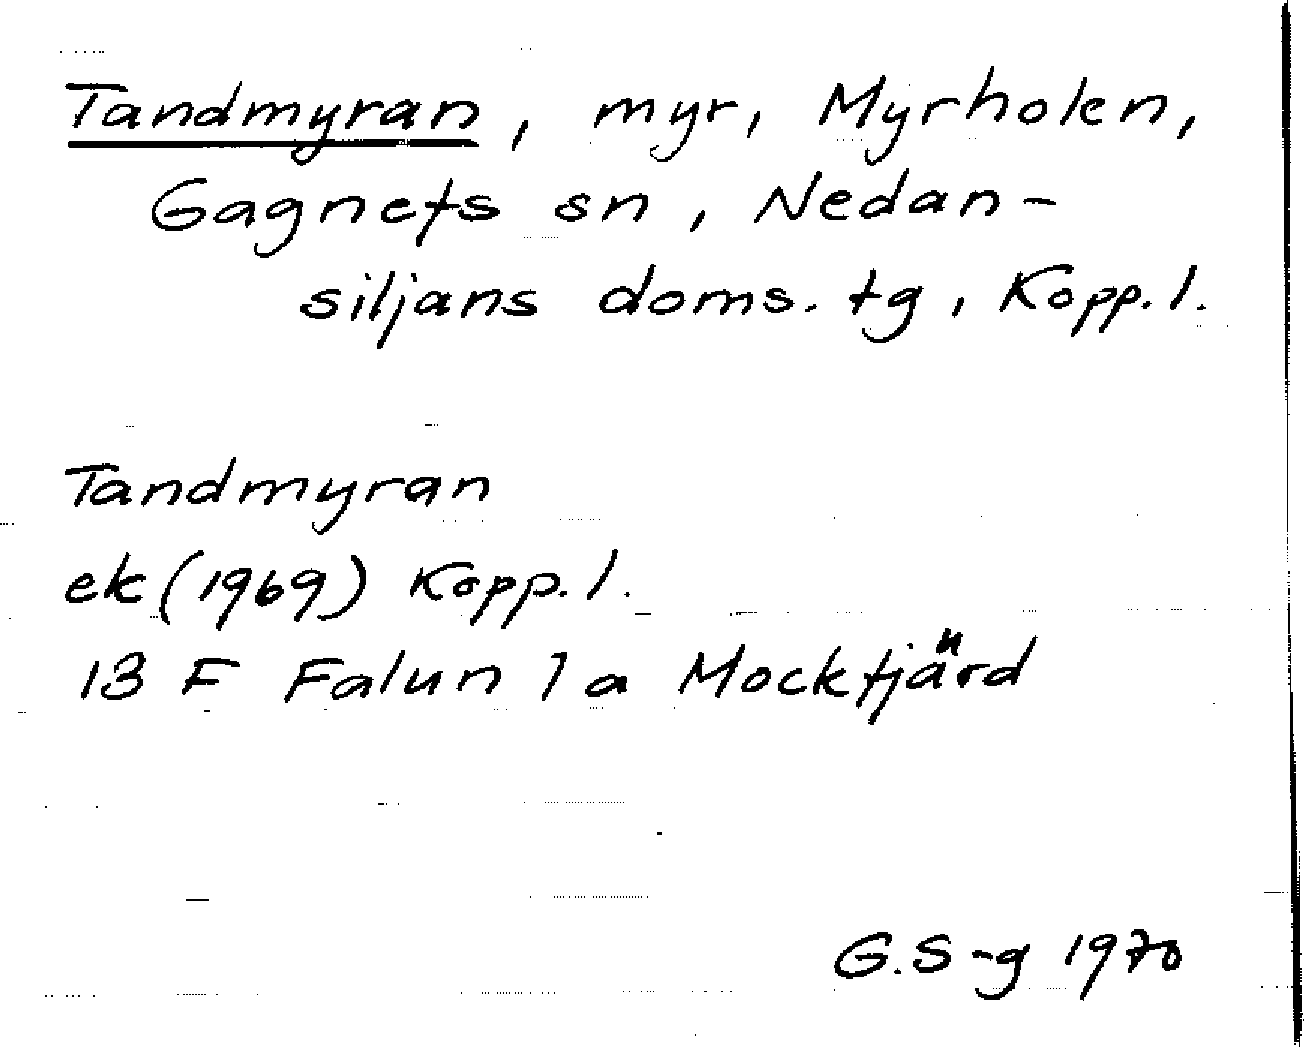 Tandmyran, myr, Myrholen,
Gagnefs sn, Nedan-
siljans doms. tg, Kopp. l.
Tandmyran
ek (1969) Kopp. l.
13 F Falun 1 a Mockfjärd
G. S-g 1970